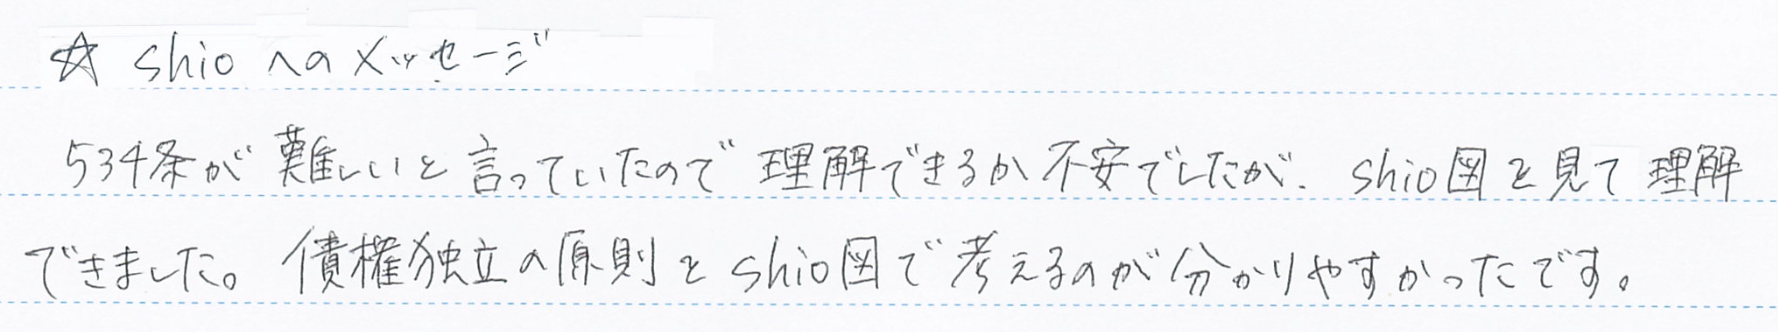 ☆ shioへのメッセージ
534条が難しいと言っていたので理解できるか不安でしたが、shio図を見て理解
できました。債権独立の原則とshio図で考えるのが分かりやすかったです。